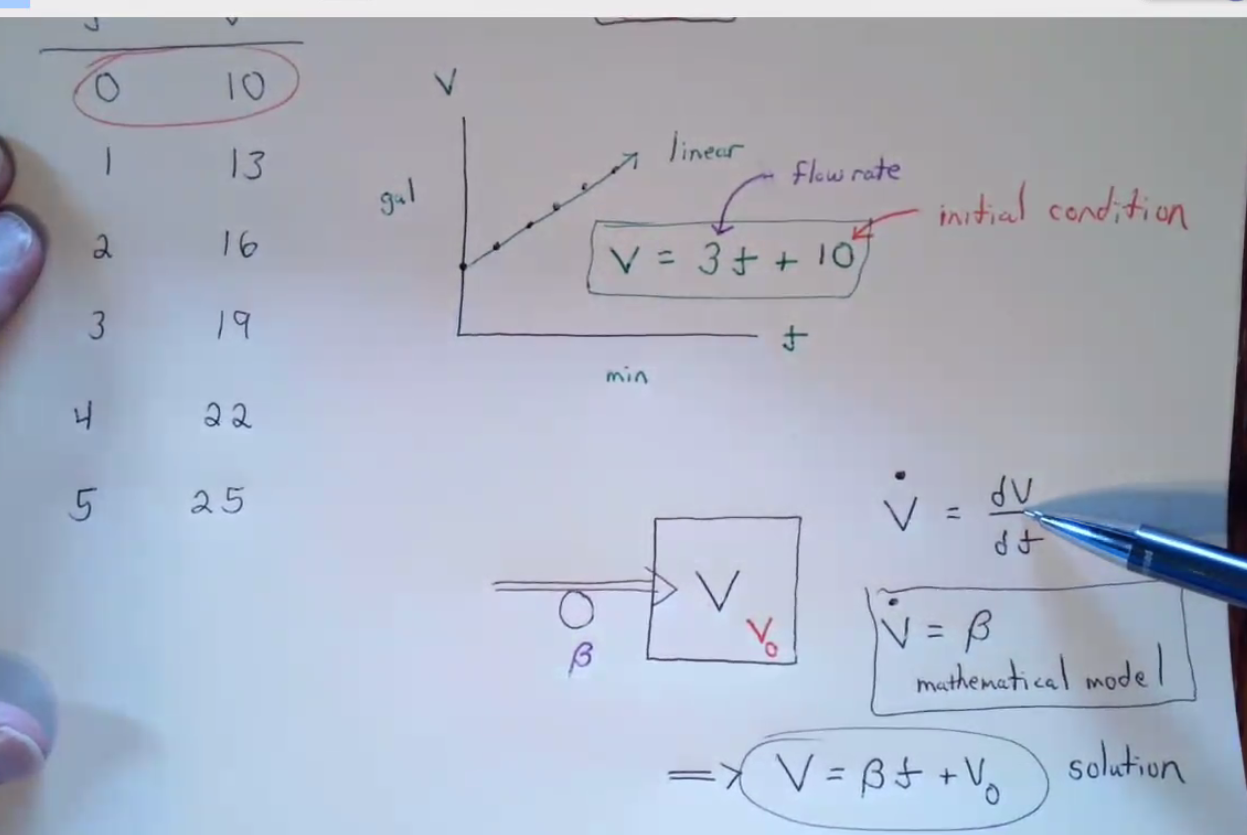 0 10
1 13
2 16
3 19
4 22
5 25
V
gal
linear
flow rate
initial condition
V = 3t + 10
t
min
V̇ = dV/dt
V
V₀
β
V̇ = β
mathematical model
=> V = βt + V₀ solution